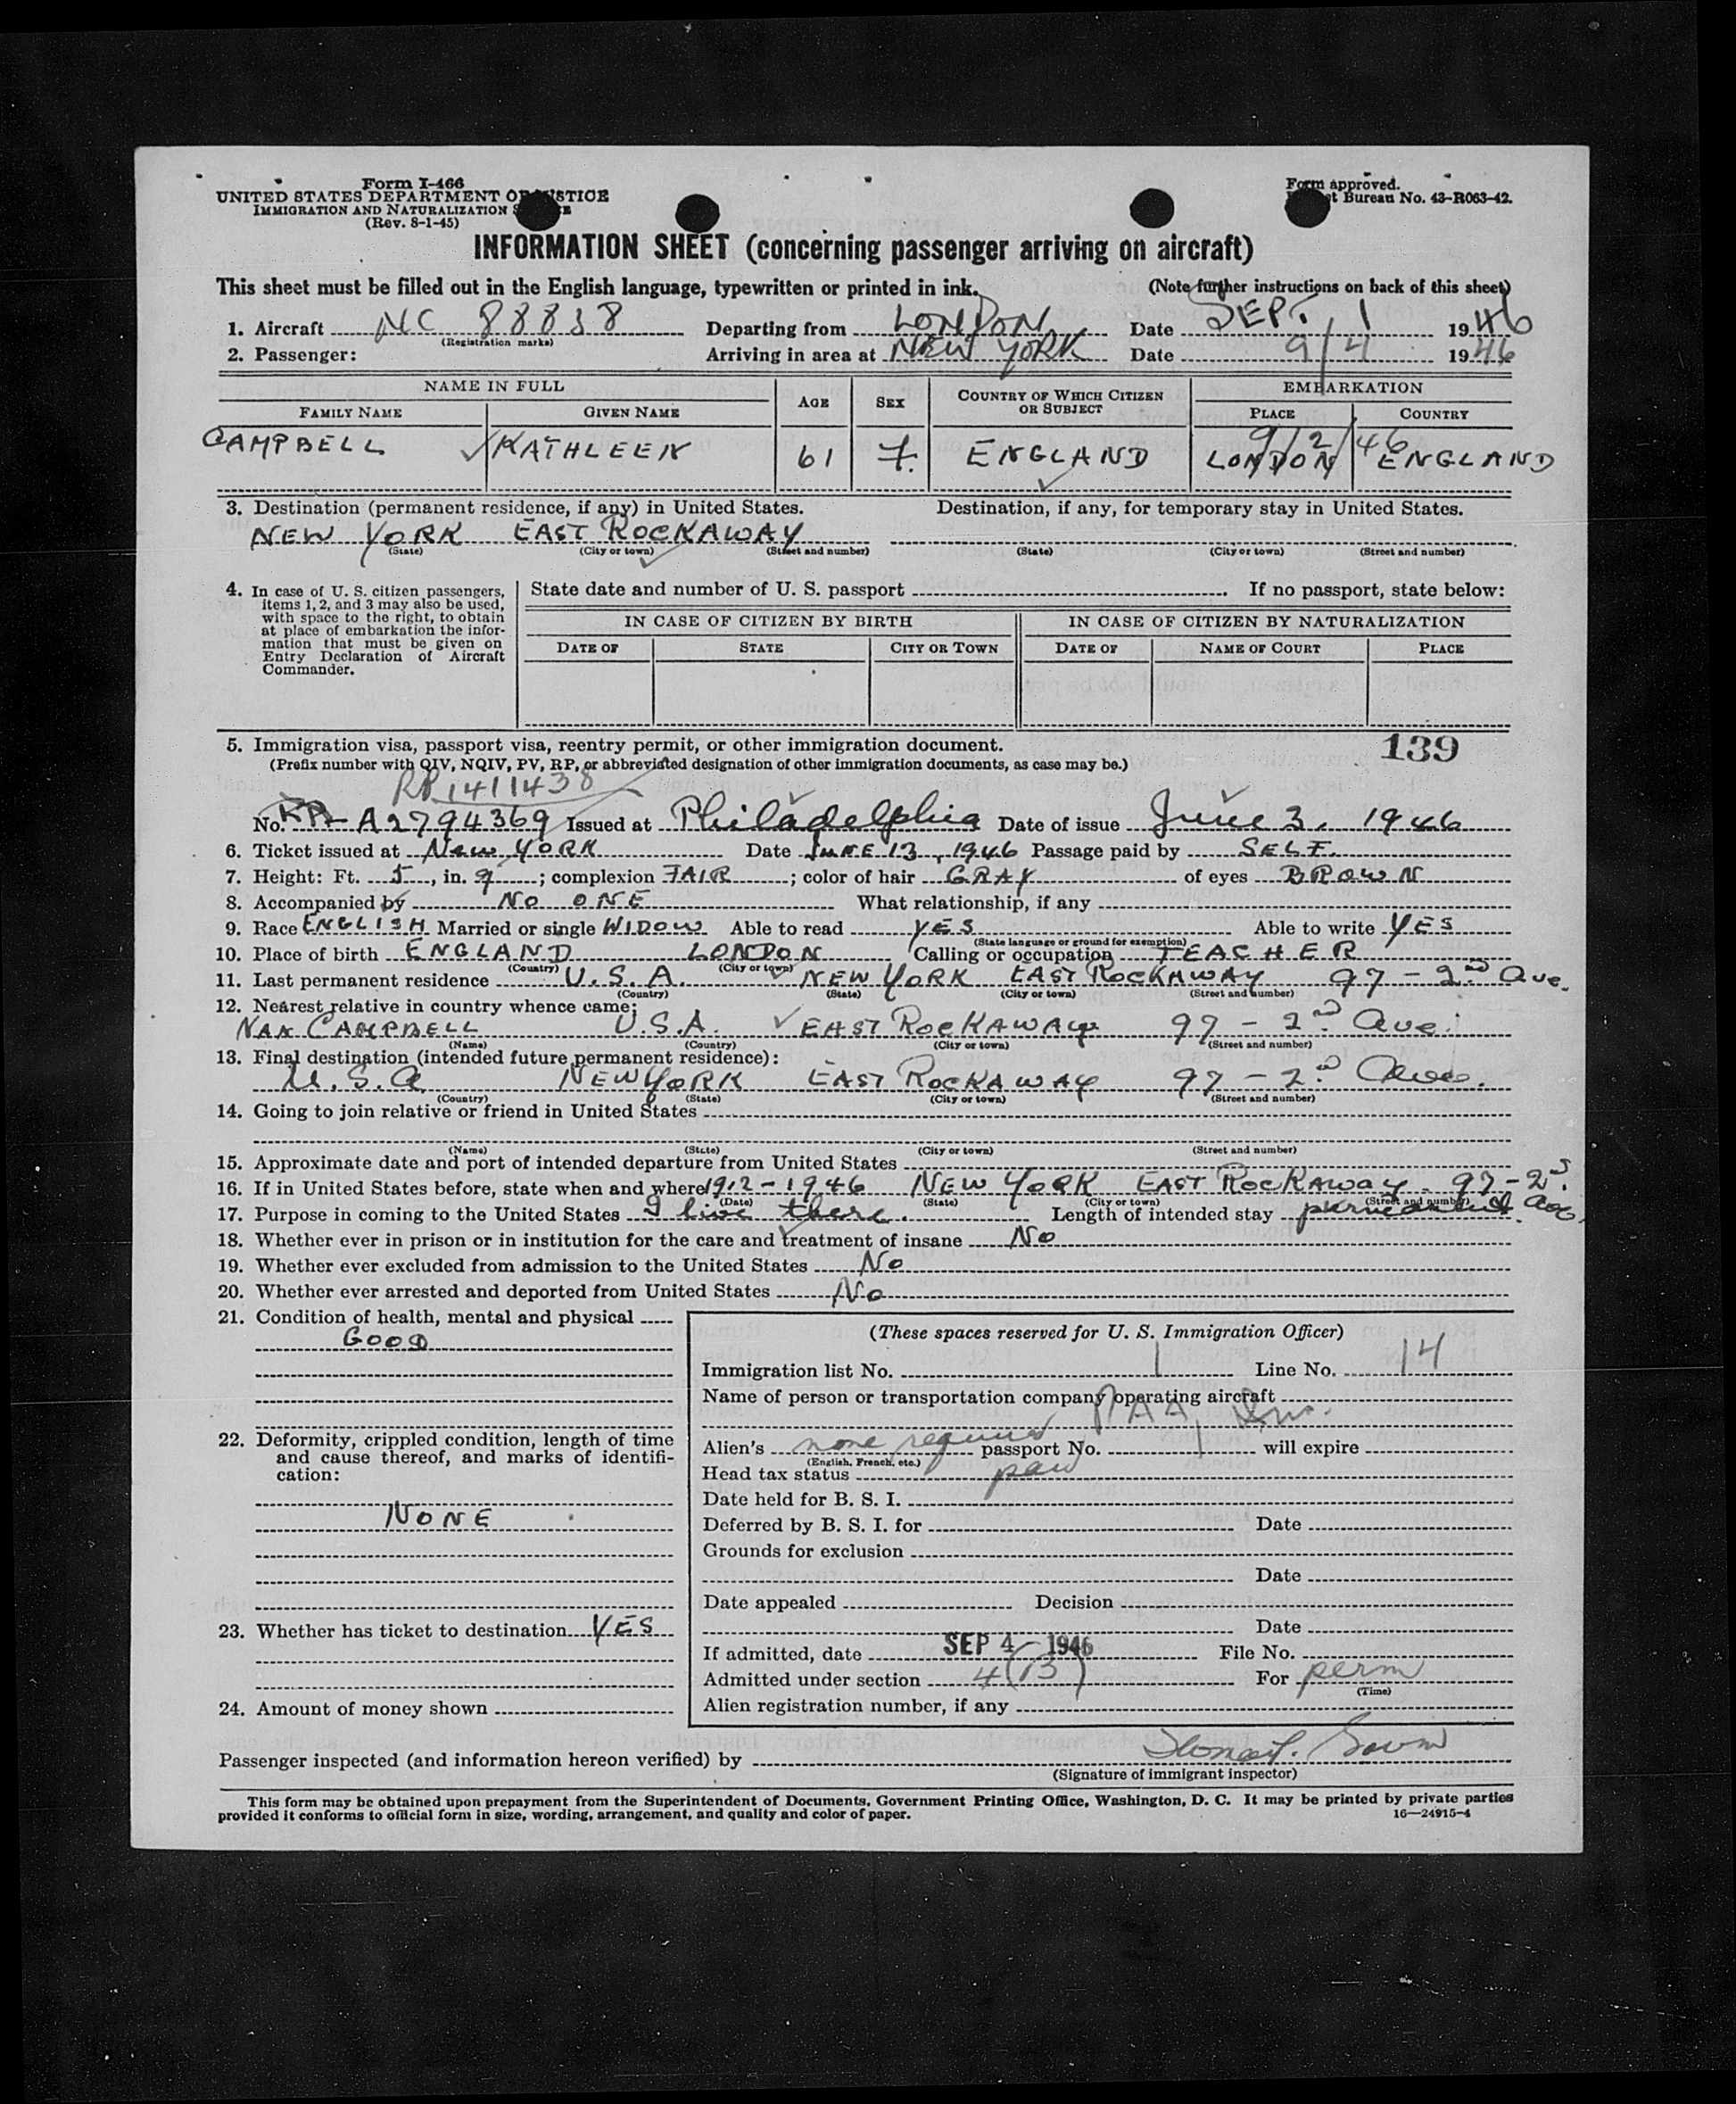 Form I-466
UNITED STATES DEPARTMENT OF JUSTICE
IMMIGRATION AND NATURALIZATION
(Rev. 8-1-45)
Form approved.
Bureau No. 43-R063-42.
INFORMATION SHEET (concerning passenger arriving on aircraft)
This sheet must be filled out in the English language, typewritten or printed in ink. (Note further instructions on back of this sheet)
1. Aircraft NC 88838 Departing from LONDON Date SEPT. 1 1946
(Registration marks)
2. Passenger: Arriving in area at NEW YORK Date 9/4 1946
NAME IN FULL AGE SEX COUNTRY OF WHICH CITIZEN OR SUBJECT EMBARKATION
FAMILY NAME GIVEN NAME PLACE COUNTRY
9/2/46
CAMPBELL KATHLEEN 61 F. ENGLAND LONDON ENGLAND
3. Destination (permanent residence, if any) in United States. Destination, if any, for temporary stay in United States.
NEW YORK EAST ROCKAWAY
(State) (City or town) (Street and number) (State) (City or town) (Street and number)
4. In case of U. S. citizen passengers, items 1, 2, and 3 may also be used, with space to the right, to obtain at place of embarkation the information that must be given on Entry Declaration of Aircraft Commander.
State date and number of U. S. passport . If no passport, state below:
IN CASE OF CITIZEN BY BIRTH IN CASE OF CITIZEN BY NATURALIZATION
DATE OF STATE CITY OR TOWN DATE OF NAME OF COURT PLACE
5. Immigration visa, passport visa, reentry permit, or other immigration document. 139
(Prefix number with QIV, NQIV, PV, RP, or abbreviated designation of other immigration documents, as case may be.)
RP 1411438
No. A2794369 Issued at Philadelphia Date of issue June 3, 1946
6. Ticket issued at New YORK Date JUNE 13, 1946 Passage paid by SELF.
7. Height: Ft. 5, in. 9; complexion FAIR; color of hair GRAY of eyes BROWN
8. Accompanied by NO ONE What relationship, if any
9. Race ENGLISH Married or single WIDOW Able to read YES Able to write YES
(State language or ground for exemption)
10. Place of birth ENGLAND LONDON Calling or occupation TEACHER
(Country) (City or town)
11. Last permanent residence U.S.A. NEW YORK EAST ROCKAWAY 97 - 2nd Ave.
(Country) (State) (City or town) (Street and number)
12. Nearest relative in country whence came:
NAN CAMPBELL U.S.A. EAST ROCKAWAY 97 - 2nd Ave.
(Name) (Country) (City or town) (Street and number)
13. Final destination (intended future permanent residence):
U.S.A NEW YORK EAST ROCKAWAY 97 - 2nd Ave.
(Country) (State) (City or town) (Street and number)
14. Going to join relative or friend in United States
(Name) (State) (City or town) (Street and number)
15. Approximate date and port of intended departure from United States
16. If in United States before, state when and where 1912 - 1946 NEW YORK EAST ROCKAWAY 97-2nd Ave.
(Date) (State) (City or town) (Street and number)
17. Purpose in coming to the United States I live there. Length of intended stay permanent
18. Whether ever in prison or in institution for the care and treatment of insane No
19. Whether ever excluded from admission to the United States No
20. Whether ever arrested and deported from United States No
21. Condition of health, mental and physical
GOOD
22. Deformity, crippled condition, length of time and cause thereof, and marks of identification:
NONE
23. Whether has ticket to destination YES
24. Amount of money shown
(These spaces reserved for U. S. Immigration Officer)
Immigration list No. 1 Line No. 14
Name of person or transportation company operating aircraft
PAA, Inc.
Alien's none required passport No. will expire
(English, French, etc.)
Head tax status paid
Date held for B. S. I.
Deferred by B. S. I. for Date
Grounds for exclusion
Date
Date appealed Decision
Date
If admitted, date SEP 4 - 1946 File No.
Admitted under section 4(B) For perm
(Time)
Alien registration number, if any
Passenger inspected (and information hereon verified) by
(Signature of immigrant inspector)
This form may be obtained upon prepayment from the Superintendent of Documents, Government Printing Office, Washington, D. C. It may be printed by private parties
provided it conforms to official form in size, wording, arrangement, and quality and color of paper. 16—24915-4